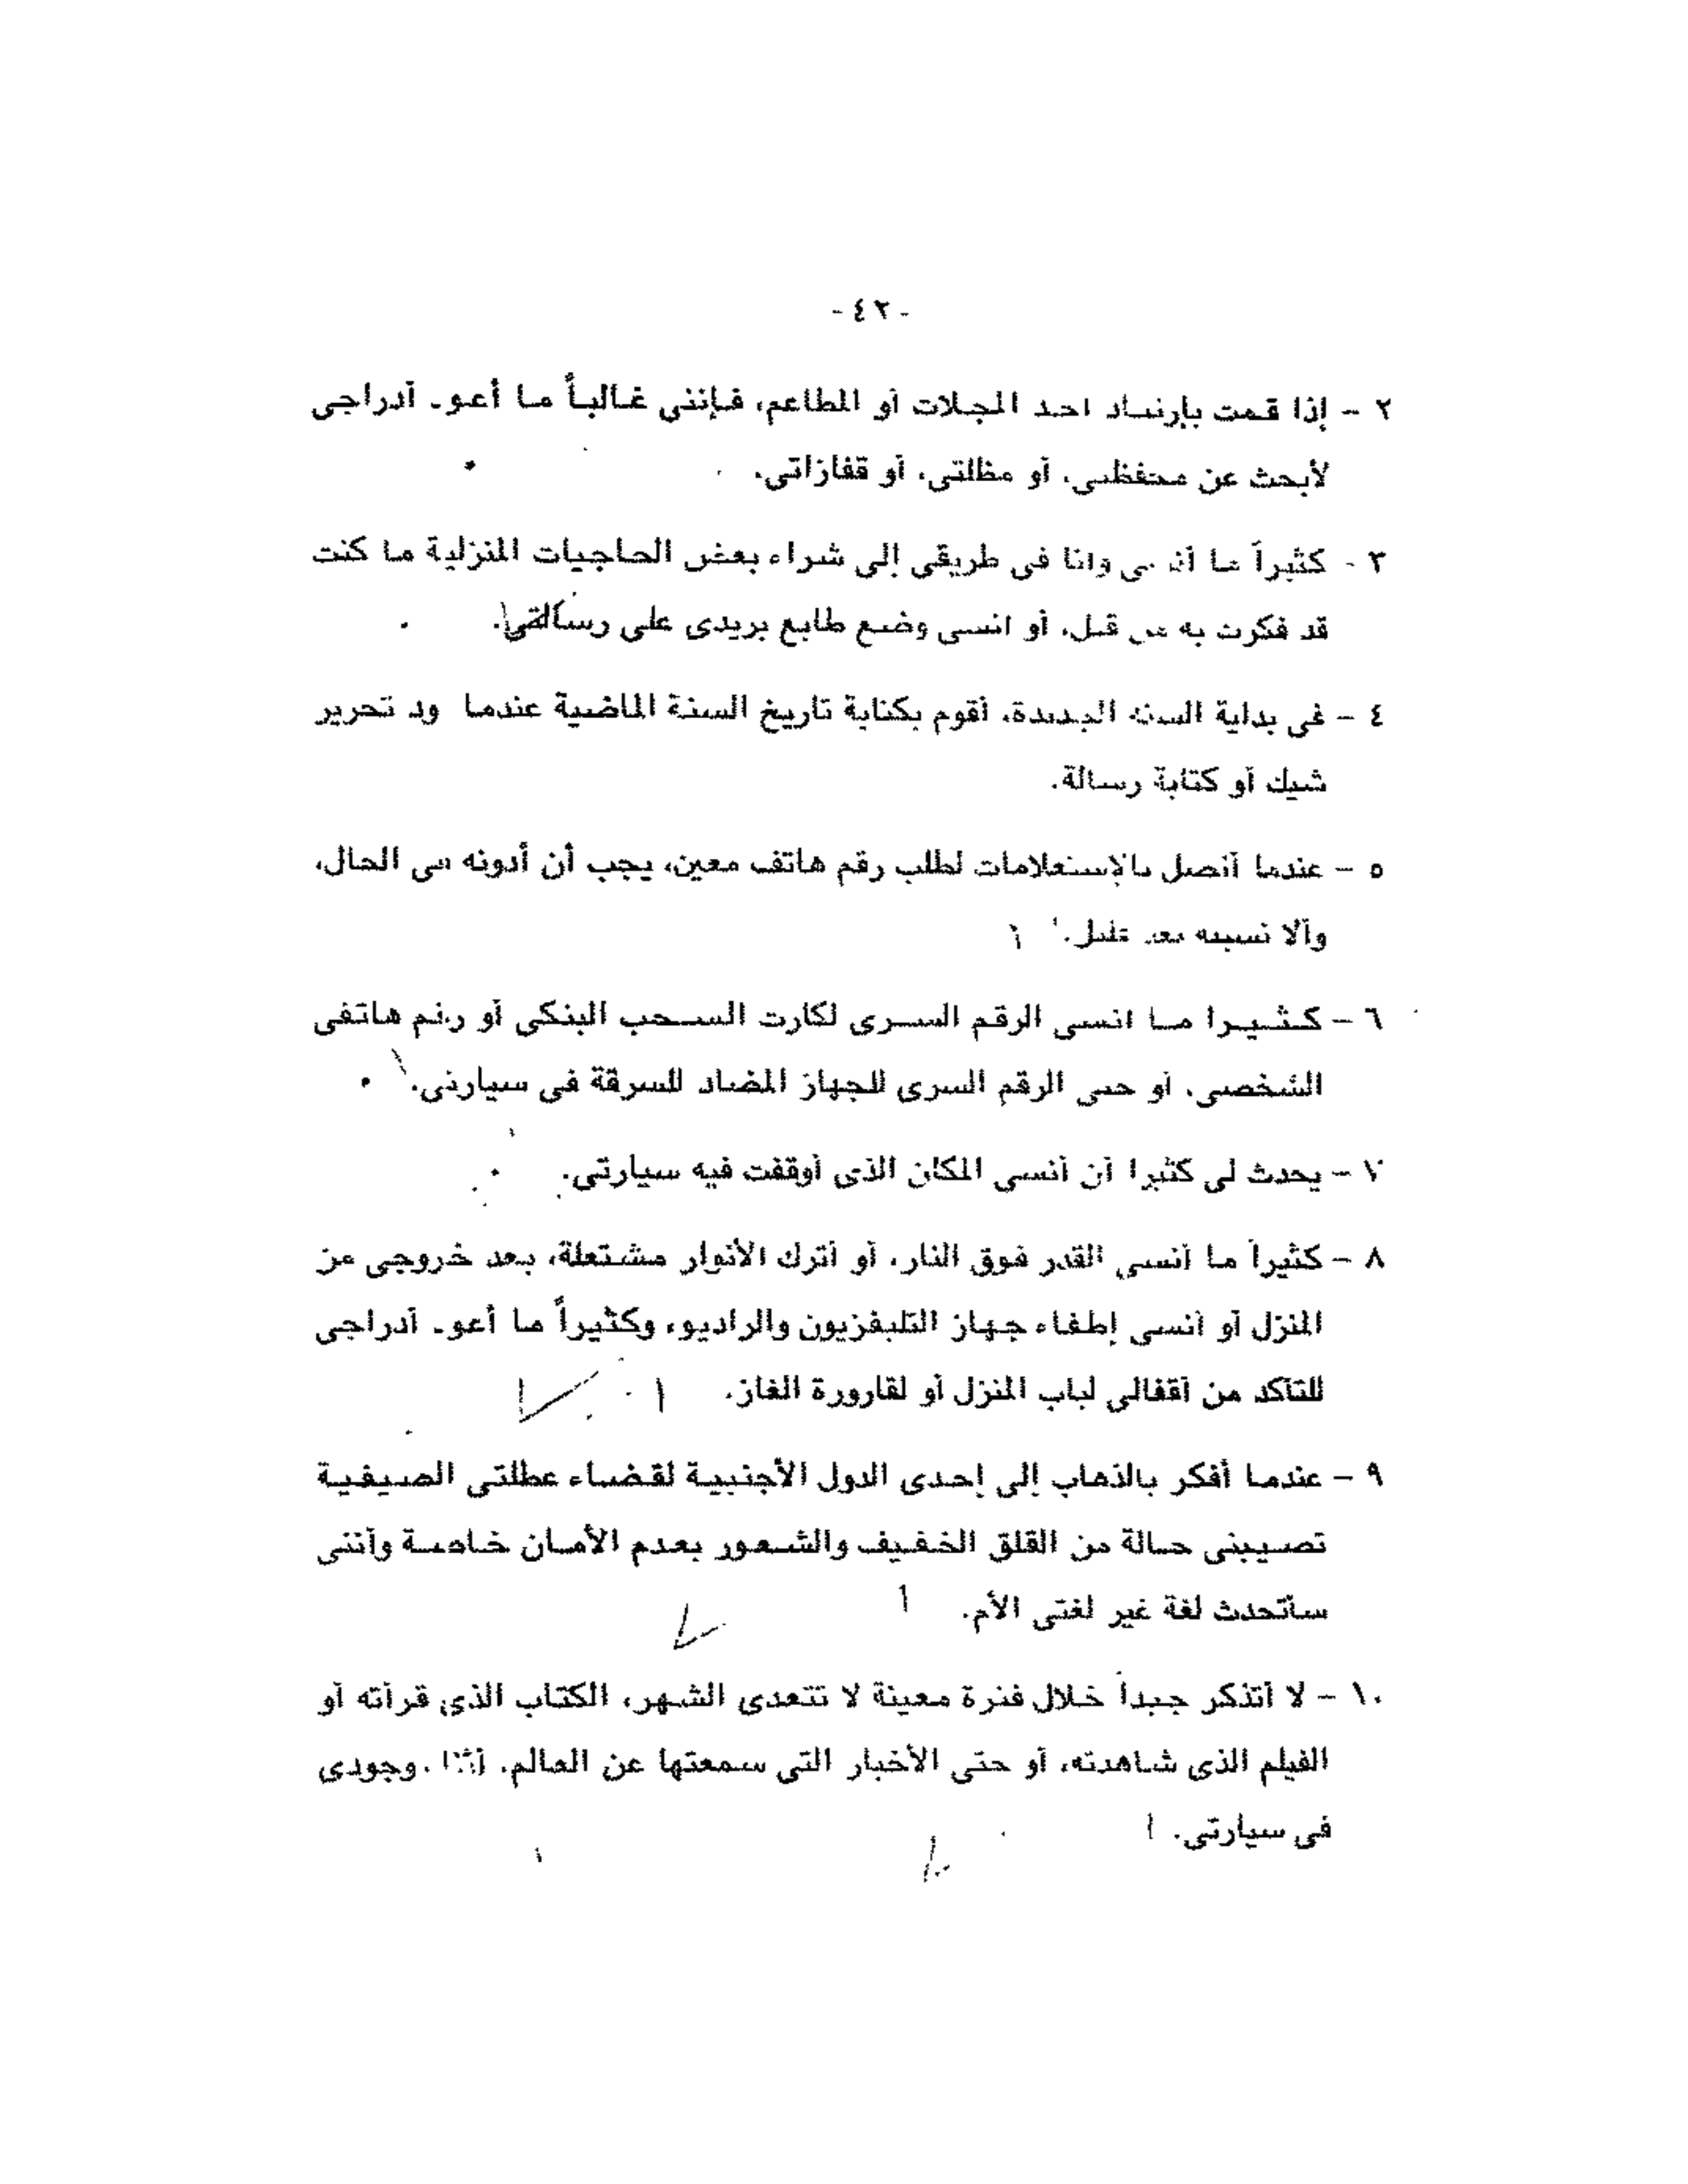 - ٤٢ -
٢ - إذا قمت بإرتياد احد المجلات أو المطاعم، فإننى غالباً ما أعو. أدراجى
لأبحث عن محفظتى، أو مظلتى، أو قفازاتى.
٣ - كثيراً ما وانا فى طريقى إلى شراء بعض الحاجيات المنزلية ما كنت
قد فكرت به من قبل، أو انسى وضع طابع بريدى على رسالتى.
٤ - فى بداية السنة الجديدة، أقوم بكتابة تاريخ السنة الماضية عندما تحرير
شيك أو كتابة رسالة.
٥ - عندما أتصل بالإستعلامات لطلب رقم هاتف معين، يجب أن أدونه الحال،
وألا نسيته بعد قليل.
٦ - كثيرا ما انسى الرقم السرى لكارت السحب البنكى أو رقم هاتفى
الشخصى، أو حتى الرقم السرى للجهاز المضاد للسرقة فى سيارتى.
٧ - يحدث لى كثيرا أن أنسى المكان الذى أوقفت فيه سيارتى.
٨ - كثيراً ما أنسى القدر فوق النار، أو أترك الأنوار مشتعلة، بعد خروجى من
المنزل أو أنسى إطفاء جهاز التليفزيون والراديو، وكثيراً ما أعو. أدراجى
للتأكد من أقفالى لباب المنزل أو لقارورة الغاز.
٩ - عندما أفكر بالذهاب إلى إحدى الدول الأجنبية لقضاء عطلتى الصيفية
تصيبنى حالة من القلق الخفيف والشعور بعدم الأمان خاصة وأننى
سأتحدث لغة غير لغتى الأم.
١٠ - لا أتذكر جيداً خلال فترة معينة لا تتعدى الشهر، الكتاب الذى قرأته أو
الفيلم الذى شاهدته، أو حتى الأخبار التى سمعتها عن العالم، وجودى
فى سيارتى.